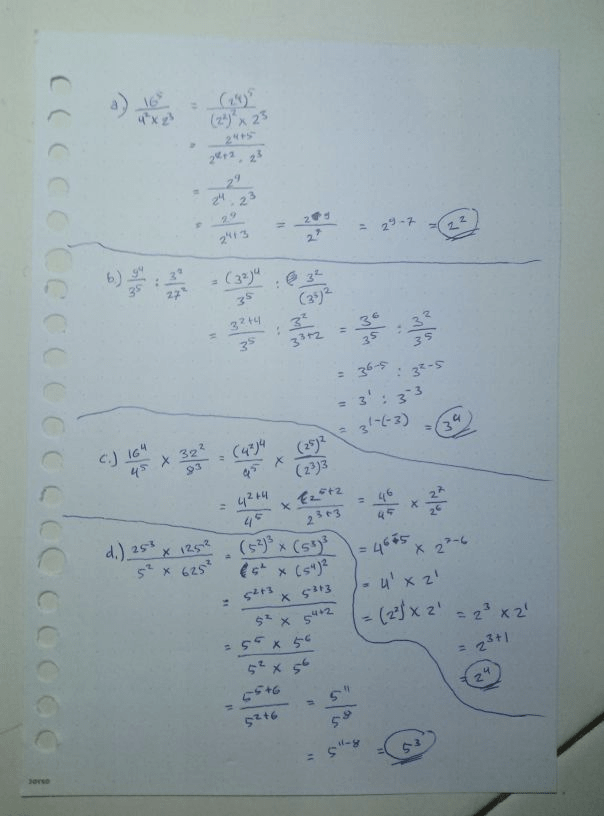 a.) 16⁵/4² × 2³ = (2⁴)⁵/(2²)² × 2³
= 2⁴⁺⁵/2²⁺² . 2³
= 2⁹/2⁴ . 2³
= 2⁹/2⁴⁺³ = 2⁹/2⁷ = 2⁹⁻⁷ = 2²
b.) 9⁴/3⁵ : 3²/27² = (3²)⁴/3⁵ : 3²/(3³)²
= 3²⁺⁴/3⁵ : 3²/3³⁺² = 3⁶/3⁵ : 3²/3⁵
= 3⁶⁻⁵ : 3²⁻⁵
= 3¹ : 3⁻³
= 3¹⁻⁽⁻³⁾ = 3⁴
c.) 16⁴/4⁵ × 32²/8³ = (4²)⁴/4⁵ × (2⁵)²/(2³)³
= 4²⁺⁴/4⁵ × 2⁵⁺²/2³⁺³ = 4⁶/4⁵ × 2⁷/2⁶
= 4⁶⁻⁵ × 2⁷⁻⁶
= 4¹ × 2¹
= (2²)¹ × 2¹ = 2³ × 2¹
= 2³⁺¹
= 2⁴
d.) 25³ × 125²/5² × 625² = (5²)³ × (5³)³/5² × (5⁴)²
= 5²⁺³ × 5³⁺³/5² × 5⁴⁺²
= 5⁵ × 5⁶/5² × 5⁶
= 5⁵⁺⁶/5²⁺⁶ = 5¹¹/5⁸
= 5¹¹⁻⁸ = 5³